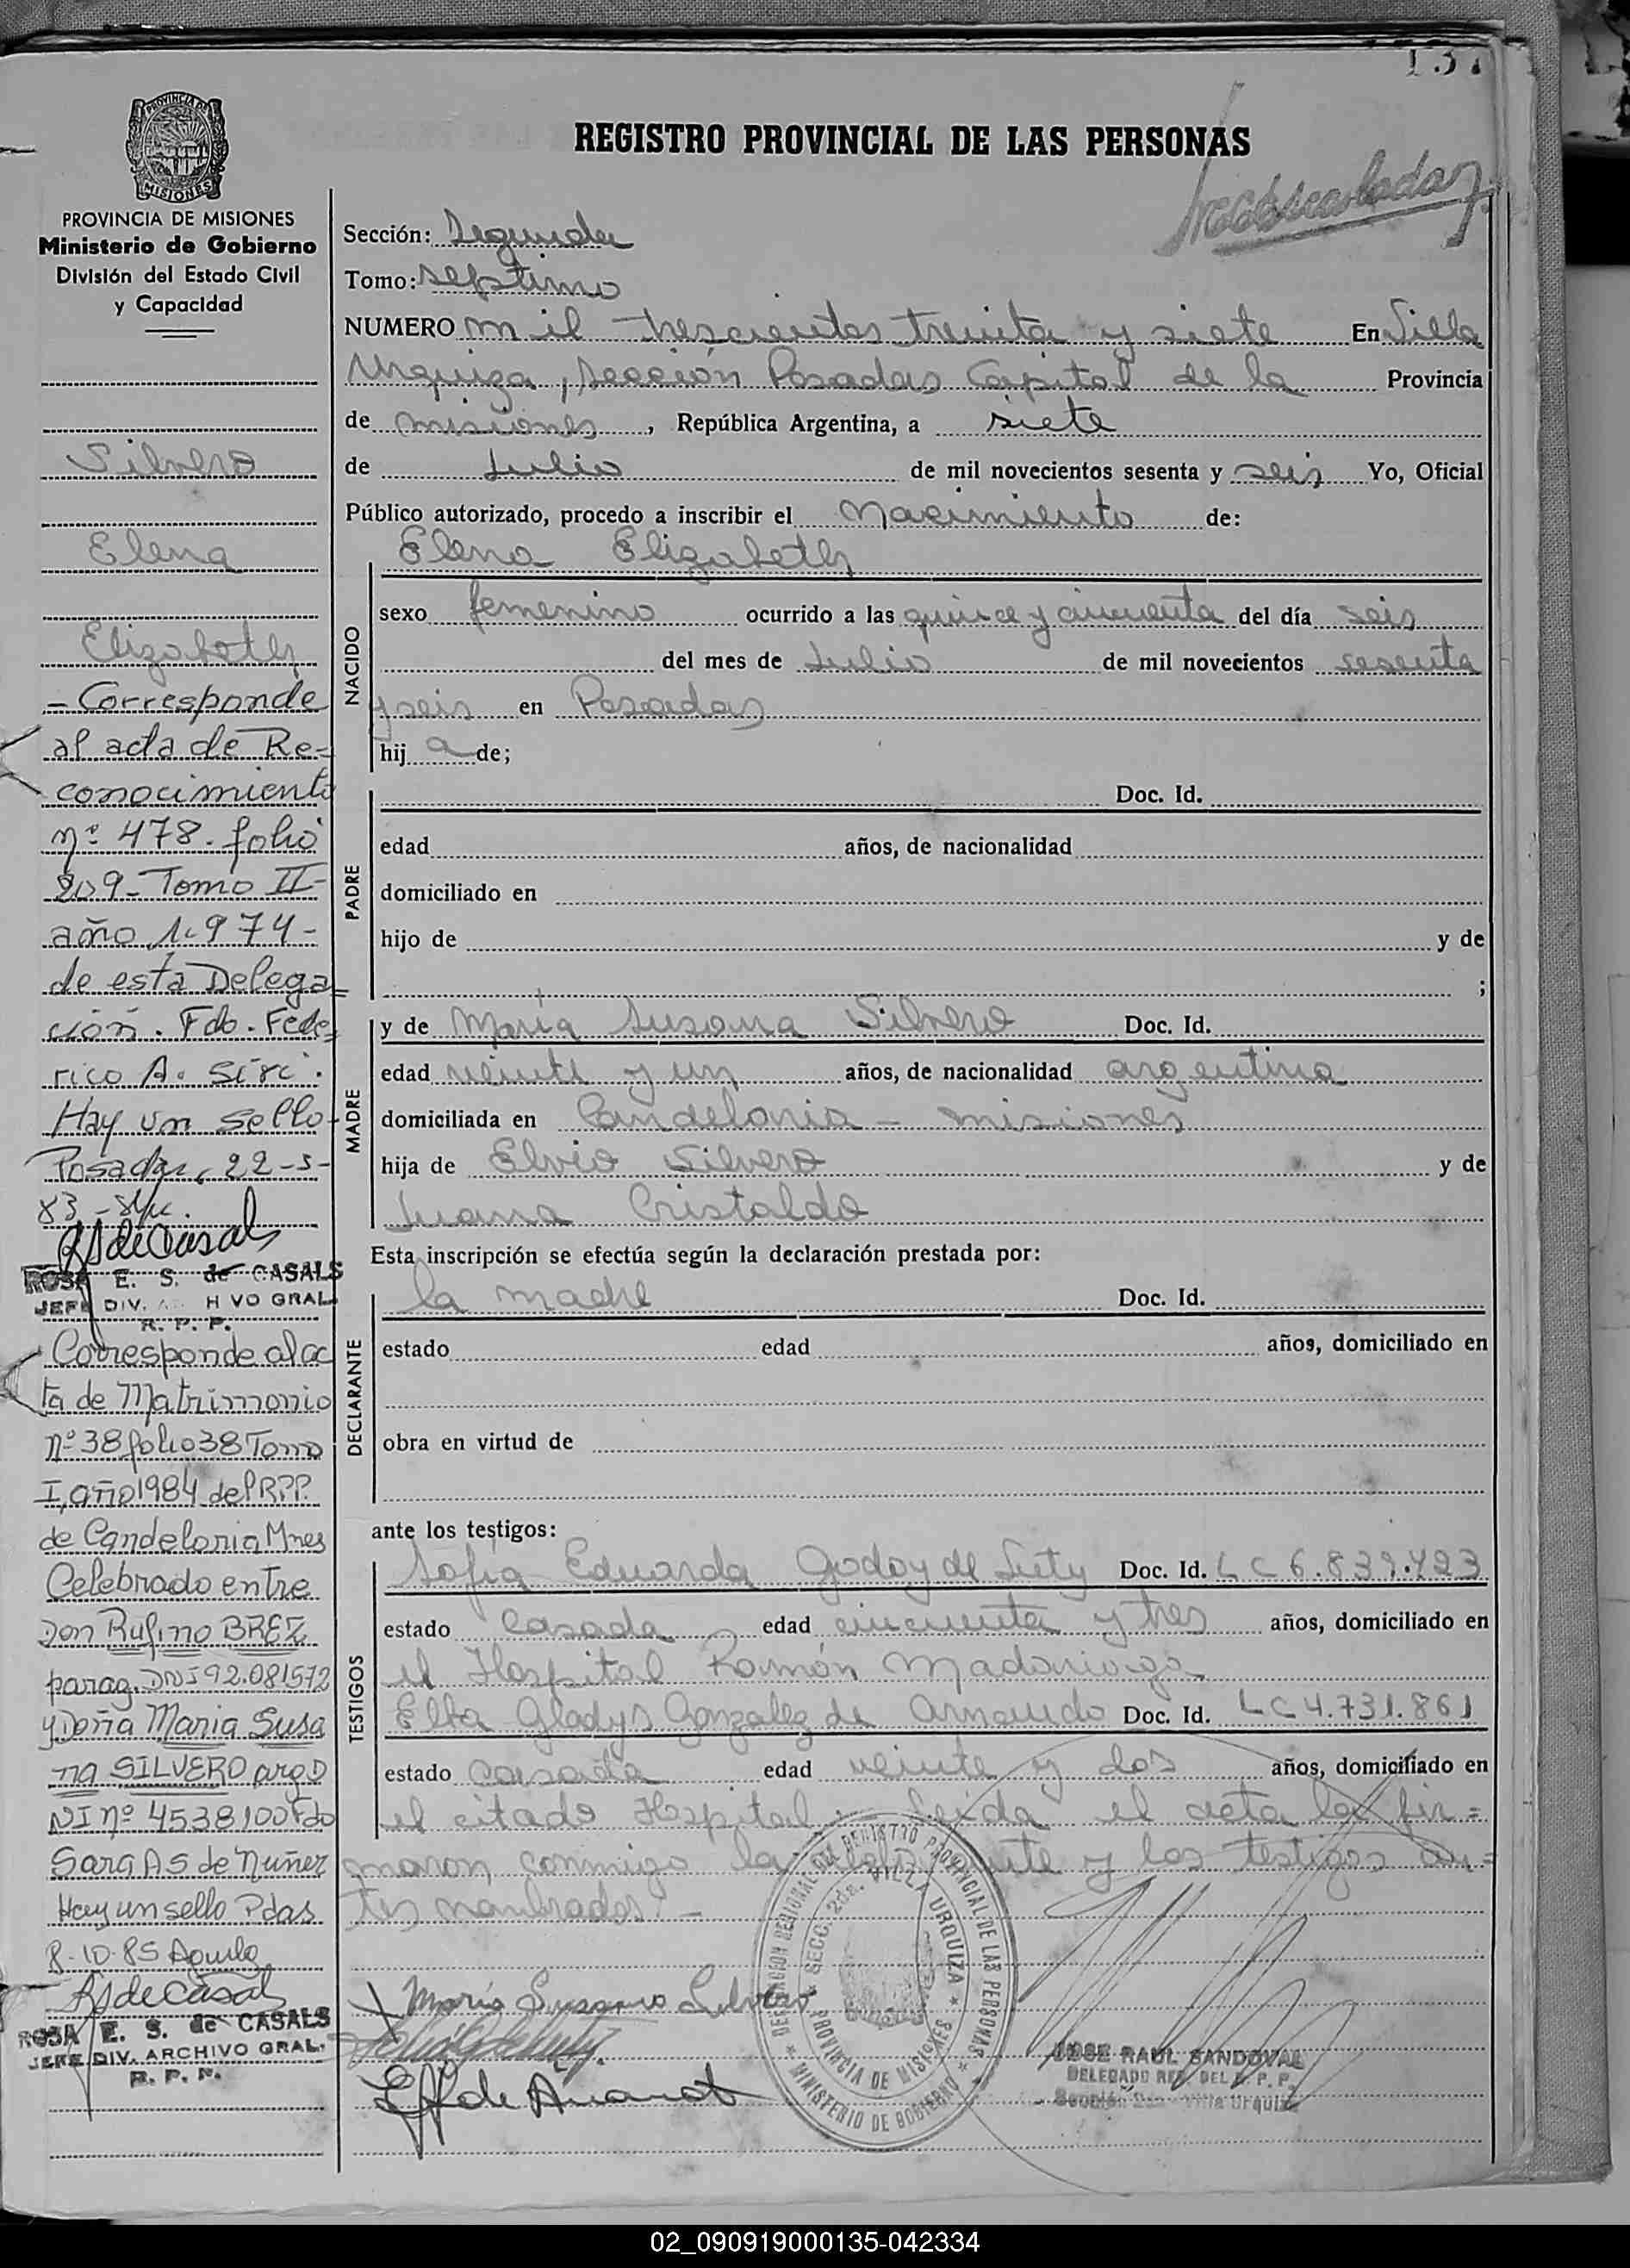 REGISTRO PROVINCIAL DE LAS PERSONAS
PROVINCIA DE MISIONES
Ministerio de Gobierno
División del Estado Civil
y Capacidad
Silvero
Elena
Elizabeth
- Corresponde
al acta de Re-
conocimiento
nº 478. folio
209 - Tomo II -
año 1.974 -
de esta Delega
ción. Fdo. Fede
rico A. Siri.
Hay un sello -
Posadas, 22-5-
83 -
RSdeCasals
ROSA E. S. de CASALS
JEFE DIV. ARCHIVO GRAL.
R. P. P.
Corresponde al ac
ta de Matrimonio
nº 38 folio 38 Tomo
I, año 1984 del R.P.P.
de Candelaria Mnes
Celebrado entre
Don Rufino BREZ
parag. DNI 92.081572
y Doña Maria Susa
na SILVERO arg D
NI nº 4538100 Fdo
Sara AS de Nuñez
Hay un sello Pdas
8-10-85
RSdeCasals
ROSA E. S. de CASALS
JEFE DIV. ARCHIVO GRAL.
R. P. P.
Sección: Segunda
Tomo: septimo
NUMERO mil trescientos treinta y siete En Villa
Urquiza, sección Posadas Capital de la Provincia
de misiones, República Argentina, a siete
de Julio de mil novecientos sesenta y seis Yo, Oficial
Público autorizado, procedo a inscribir el nacimiento de:
Elena Elizabeth
NACIDO
sexo femenino ocurrido a las quince y cincuenta del día seis
del mes de Julio de mil novecientos sesenta
y seis en Posadas
hij a de;
PADRE
Doc. Id.
edad años, de nacionalidad
domiciliado en
hijo de y de
;
MADRE
y de María Susana Silvero Doc. Id.
edad veinte y un años, de nacionalidad argentina
domiciliada en Candelaria - misiones
hija de Elvio Silvero y de
Juana Cristaldo
Esta inscripción se efectúa según la declaración prestada por:
DECLARANTE
la madre Doc. Id.
estado edad años, domiciliado en
obra en virtud de
ante los testigos:
TESTIGOS
Sofia Eduarda Godoy de Doc. Id. LC 6.839.423
estado casada edad cincuenta y tres años, domiciliado en
el Hospital Ramón Madariaga
Elba Gladys Gonzalez de Doc. Id. LC 4.731.861
estado casada edad veinte y dos años, domiciliado en
el citado Hospital. Leida el acta la fir=
maron conmigo la y los testigos an=
tes nombrados. -
María Susana Silvero
DELEGACION REGIONAL DEL REGISTRO PROVINCIAL DE LAS PERSONAS * MINISTERIO DE GOBIERNO *
SECC. 2da. VILLA URQUIZA * PROVINCIA DE MISIONES *
JOSE RAUL SANDOVAL
DELEGADO REG. DEL R. P. P.
Sección 2da - Villa Urquiza
02_090919000135-042334